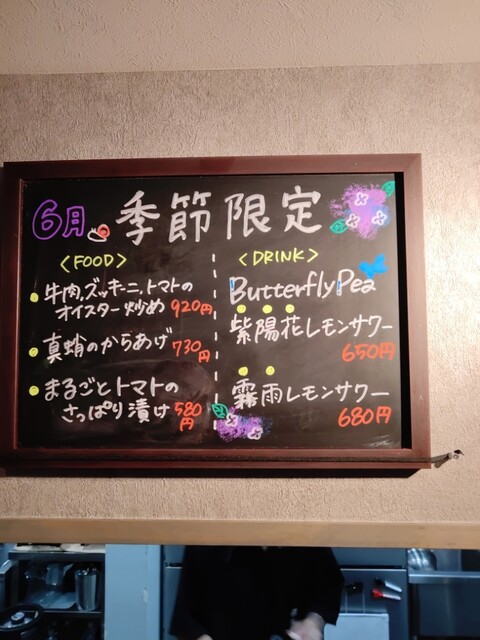 6月 季節限定
<FOOD>
牛肉、ズッキーニ、トマトの
オイスター炒め 920円
真蛸のからあげ 730円
まるごとトマトの
さっぱり漬け 580円
<DRINK>
Butterfly Pea
紫陽花レモンサワー
650円
霧雨レモンサワー
680円